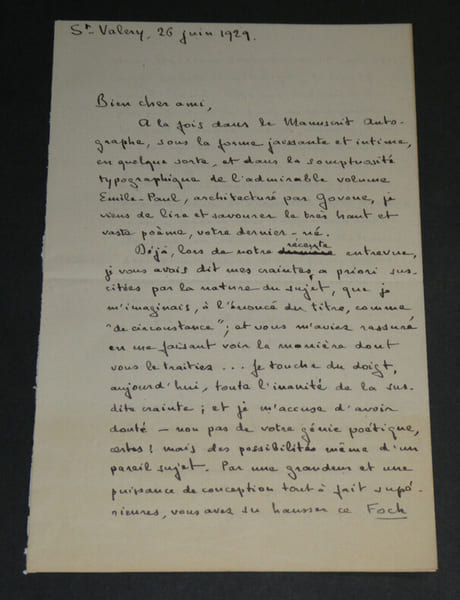 St-Valery, 26 juin 1929.
Bien cher ami,
A la fois dans le Manuscrit Auto-
graphe, sous la forme jaissante et intime,
en quelque sorte, et dans la somptuosité
typographique de l'admirable volume
Emile-Paul, architecturé par Govone, je
viens de lire et savourer le très haut et
vaste poème, votre dernier-né.
Déjà, lors de notre récente entrevue,
je vous avais dit mes craintes, à priori sus-
citées par la nature du sujet, que je
m'imaginais, à l'énoncé du titre, comme
"de circonstance"; et vous m'aviez rassuré
en me faisant voir la manière dont
vous le traitiez... Je touche du doigt,
aujourd'hui, toute l'inanité de la sus-
dite crainte; et je m'accuse d'avoir
douté — non pas de votre génie poétique,
certes! mais des possibilités même d'un
pareil sujet. Par une grandeur et une
puissance de conception tout à fait supé-
rieures, vous avez su hausser ce Foch